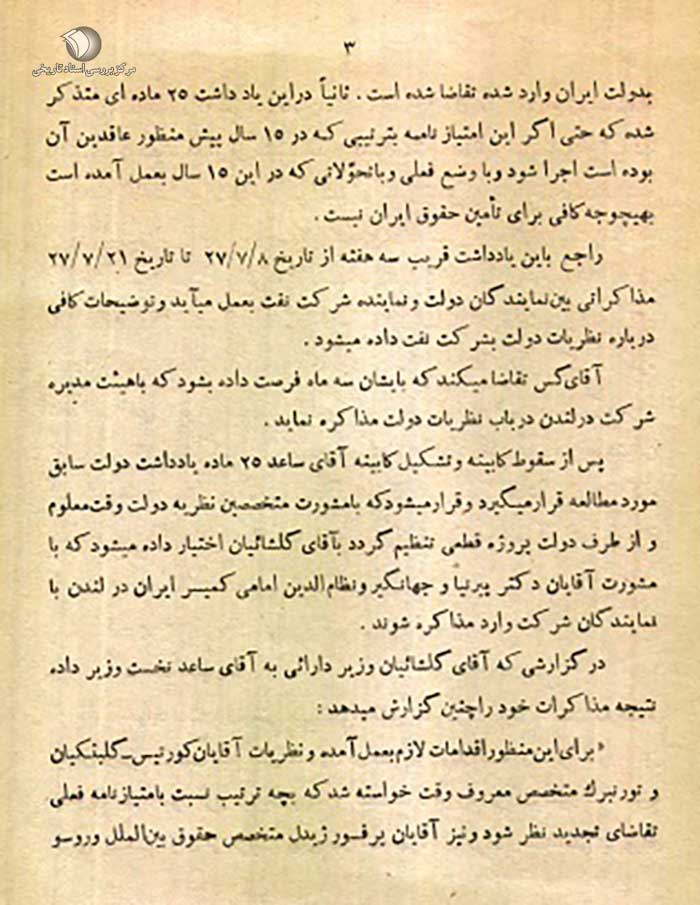 مرکز بررسی اسناد تاریخی
۳
بدولت ایران وارد شده تقاضا شده است . ثانیاً دراین یاد داشت ۲۵ ماده ای متذکر
شده که حتی اگر این امتیاز نامه بترتیبی که در ۱۵ سال پیش منظور عاقدین آن
بوده است اجرا شود وبا وضع فعلی وباتحوّلاتی که در این ۱۵ سال بعمل آمده است
بهیچوجه کافی برای تأمین حقوق ایران نیست .
راجع باین یادداشت قریب سه هفته از تاریخ ۲۷/۷/۸ تا تاریخ ۲۷/۷/۲۱
مذاکراتی بین نمایندگان دولت و نماینده شرکت نفت بعمل میآید و توضیحات کافی
درباره نظریات دولت بشرکت نفت داده میشود .
آقای گس تقاضا میکند که بایشان سه ماه فرصت داده بشود که باهیئت مدیره
شرکت در لندن درباب نظریات دولت مذاکره نماید .
پس از سقوط کابینه و تشکیل کابینه آقای ساعد ۲۵ ماده یادداشت دولت سابق
مورد مطالعه قرار میگیرد و قرار میشود که بامشورت متخصصین نظریه دولت وقت معلوم
و از طرف دولت پروژه قطعی تنظیم گردد بآقای گلشائیان اختیار داده میشود که با
مشورت آقایان دکتر پیرنیا و جهانگیر و نظام الدین امامی کمیسر ایران در لندن با
نمایندگان شرکت وارد مذاکره شوند .
در گزارشی که آقای گلشائیان وزیر دارائی به آقای ساعد نخست وزیر داده
نتیجه مذاکرات خود راچنین گزارش میدهد :
« برای این منظور اقدامات لازم بعمل آمده و نظریات آقایان کورتیس ــ گلبنکیان
و تورنبرك متخصص معروف وقت خواسته شد که بچه ترتیب نسبت بامتیازنامه فعلی
تقاضای تجدید نظر شود و نیز آقایان پرفسور ژیدل متخصص حقوق بین الملل وروسو